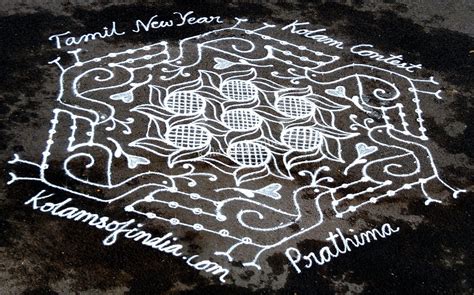 Tamil New Year
Kolam Contest
Kolamsofindia.com
Prathima